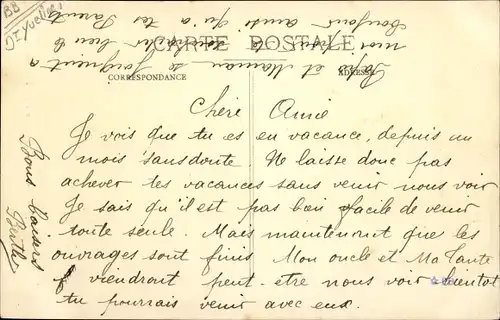 BB
CARTE POSTALE
CORRESPONDANCE
ADRESSE
Chère Amie
Je vois que tu es en vacance, depuis un
mois sans doute. Ne laisse donc pas
achever tes vacances sans venir nous voir
Je sais qu'il est pas bien facile de venir
toute seule. Mais maintenant que les
ouvrages sont finis Mon oncle et Ma Tante
viendront peut-etre nous voir bientot
tu pourrais venir avec eux.
Papa et Maman se joignent a
moi pour te souhaiter bien le
bonjour ainsi qu'a tes Parents
Bons baisers
Berthe